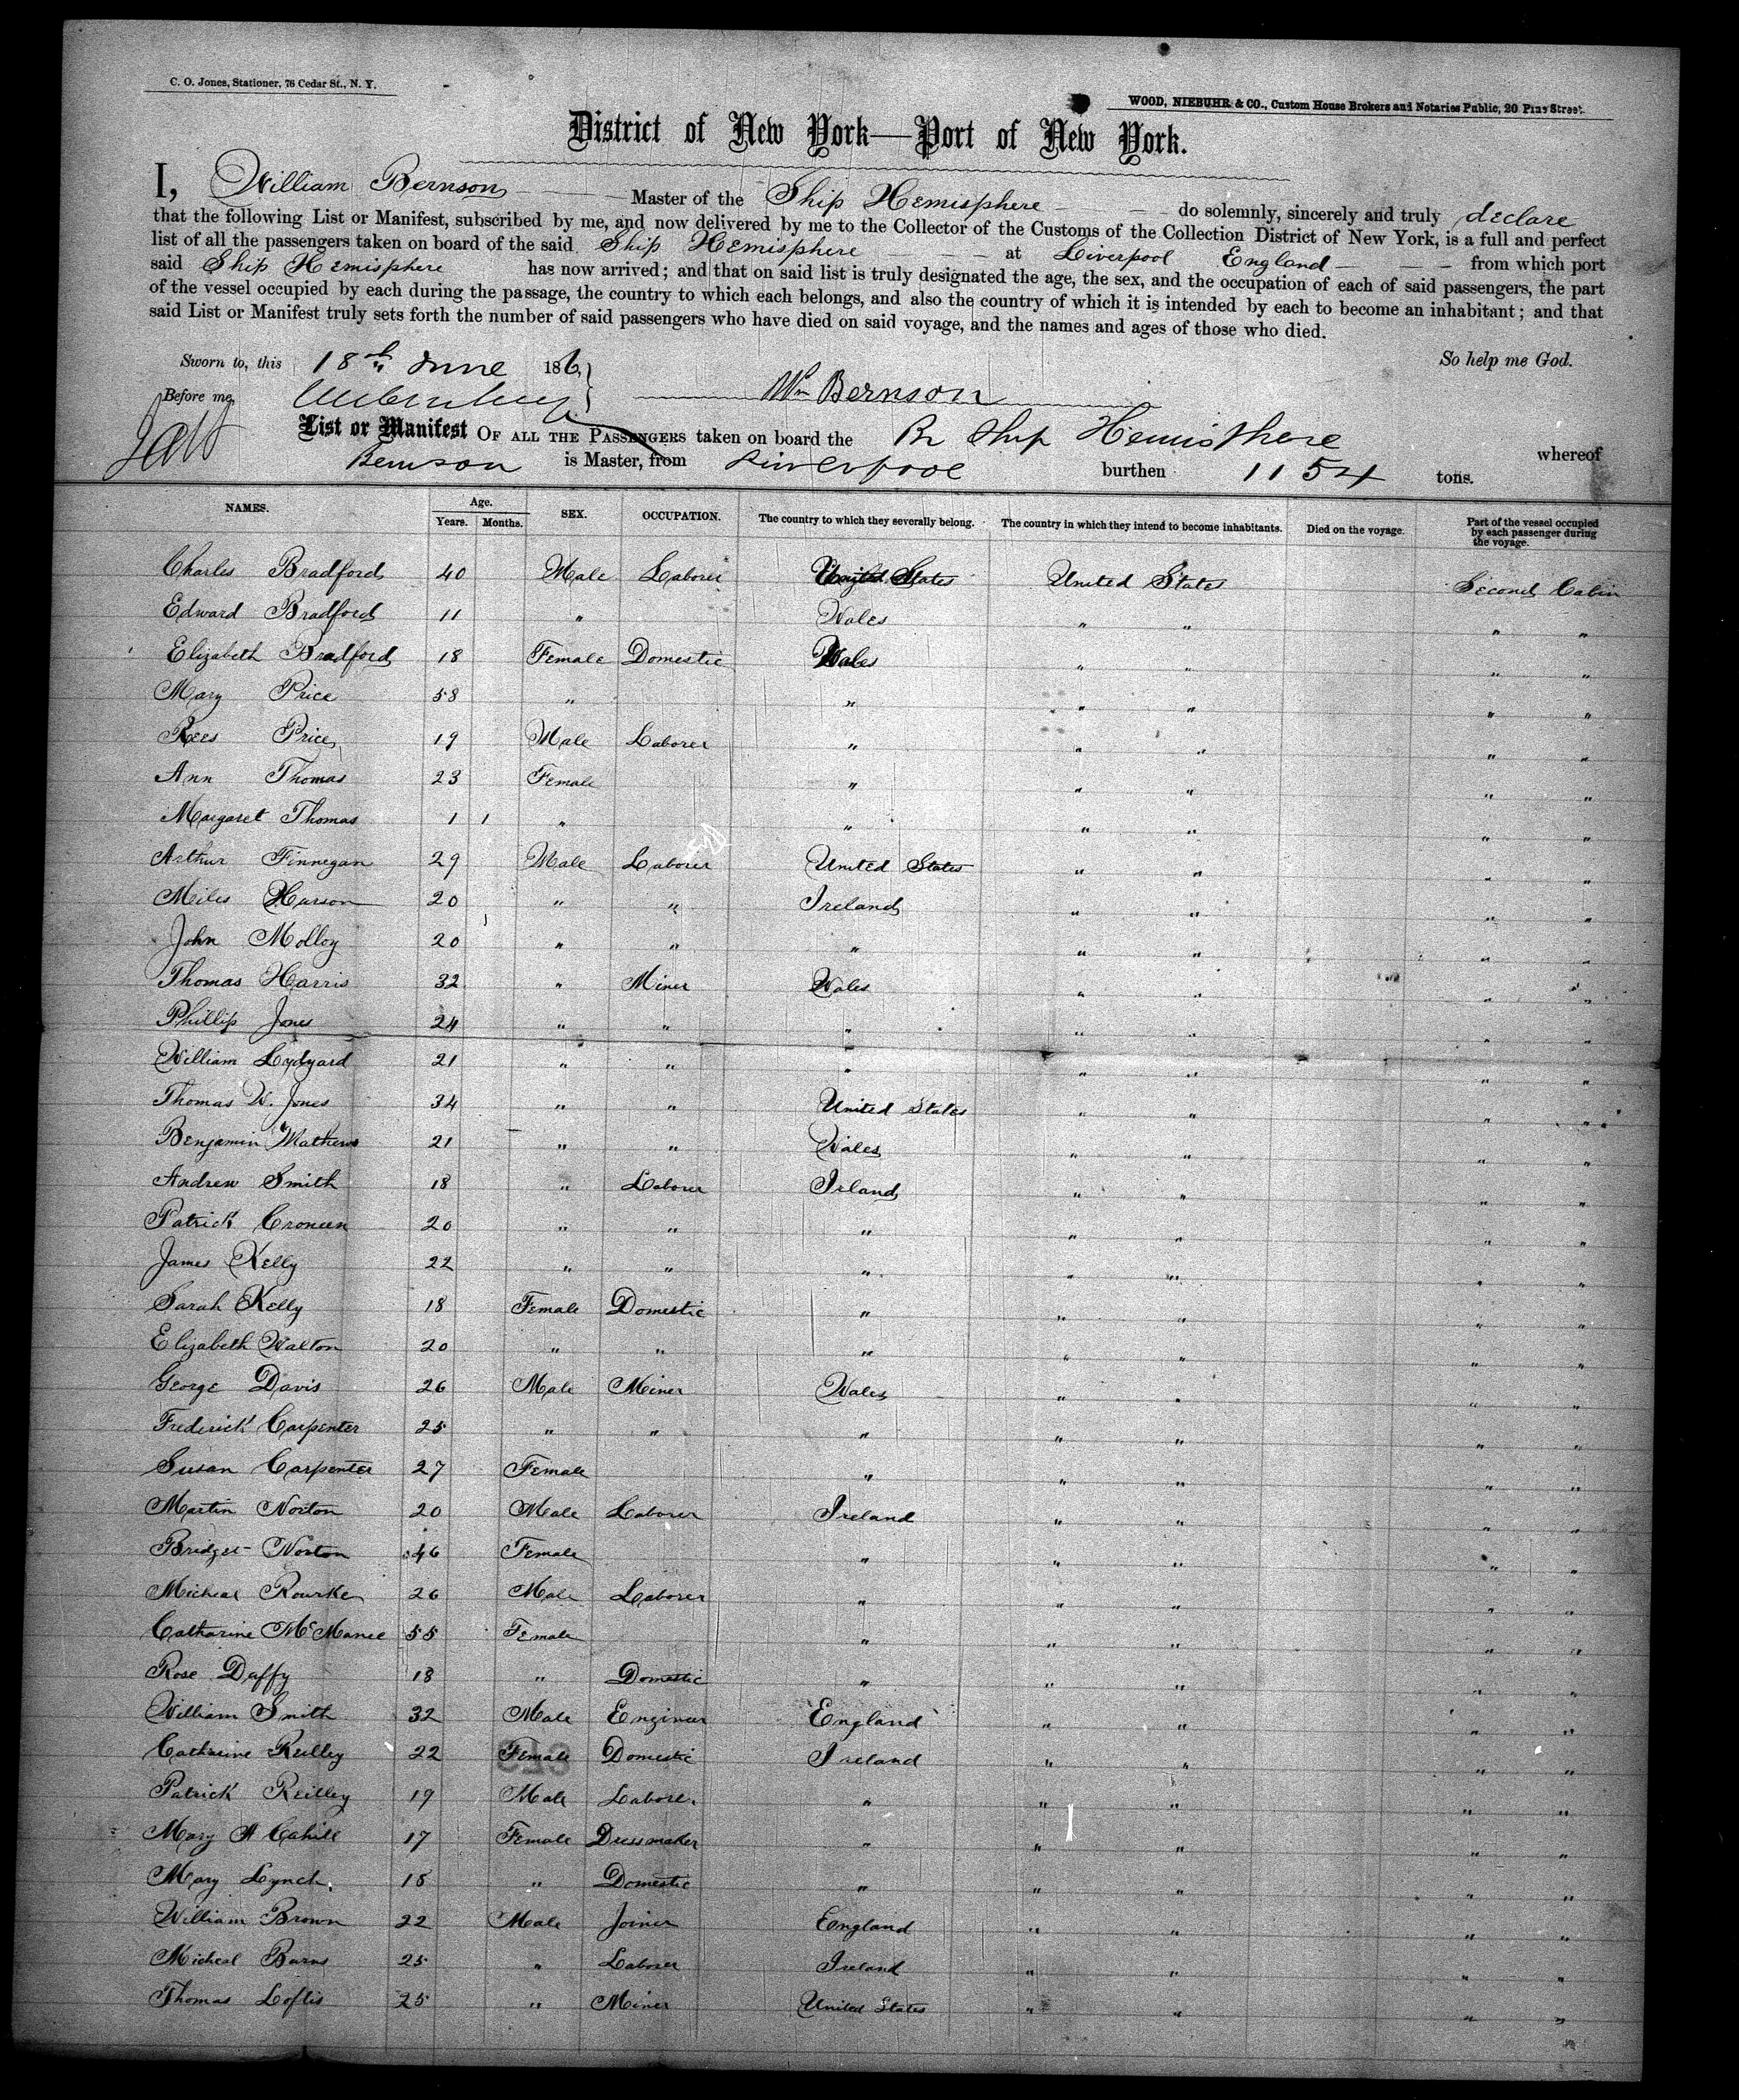 C. O. Jones, Stationer, 76 Cedar St., N. Y.
WOOD, NIEBUHR & CO., Custom House Brokers and Notaries Public, 20 Pine Street.
District of New York—Port of New York.
I, William Bernson Master of the Ship Hemisphere do solemnly, sincerely and truly declare
that the following List or Manifest, subscribed by me, and now delivered by me to the Collector of the Customs of the Collection District of New York, is a full and perfect
list of all the passengers taken on board of the said Ship Hemisphere at Liverpool England from which port
said Ship Hemisphere has now arrived; and that on said list is truly designated the age, the sex, and the occupation of each of said passengers, the part
of the vessel occupied by each during the passage, the country to which each belongs, and also the country of which it is intended by each to become an inhabitant; and that
said List or Manifest truly sets forth the number of said passengers who have died on said voyage, and the names and ages of those who died.
So help me God.
Sworn to, this 18th June 186
Before me, Wm Bernson
List or Manifest OF ALL THE PASSENGERS taken on board the Br Ship Hemisphere whereof
Bernson is Master, from Liverpool burthen 1154 tons.
NAMES. Age. Years. Months. SEX. OCCUPATION. The country to which they severally belong. The country in which they intend to become inhabitants. Died on the voyage. Part of the vessel occupied by each passenger during the voyage.
Charles Bradford 40 Male Laborer United States United States Second Cabin
Edward Bradford 11 " Wales " " " "
Elizabeth Bradford 18 Female Domestic Wales " " " "
Mary Price 58 " " " " " "
Rees Price 19 Male Laborer " " " " "
Ann Thomas 23 Female " " " " "
Margaret Thomas 1 1 " " " " " "
Arthur Finnegan 29 Male Laborer United States " " " "
Miles Harson 20 " " Ireland " " " "
John Molloy 20 " " " " " " "
Thomas Harris 32 " Miner Wales " " " "
Phillip Jones 24 " " " " " " "
William Lydyard 21 " " " " " " "
Thomas W. Jones 34 " " United States " " " "
Benjamin Mathews 21 " " Wales " " " "
Andrew Smith 18 " Laborer Irland " " " "
Patrick Croneen 20 " " " " " " "
James Kelly 22 " " " " " " "
Sarah Kelly 18 Female Domestic " " " " "
Elizabeth Walton 20 " " " " " " "
George Davis 26 Male Miner Wales " " " "
Frederick Carpenter 25 " " " " " " "
Susan Carpenter 27 Female " " " " "
Martin Norton 20 Male Laborer Ireland " " " "
Bridget Norton 46 Female " " " " "
Micheal Rourke 26 Male Laborer " " " " "
Catharine McManee 55 Female " " " " "
Rose Duffy 18 " Domestic " " " " "
William Smith 32 Male Engineer England " " " "
Catharine Reilley 22 Female Domestic Ireland " " " "
Patrick Reilley 19 Male Laborer " " " " "
Mary A Cahill 17 Female Dressmaker " " " " "
Mary Lynch 18 " Domestic " " " " "
William Brown 22 Male Joiner England " " " "
Micheal Burns 25 " Laborer Ireland " " " "
Thomas Loftis 25 " Miner United States " " " "